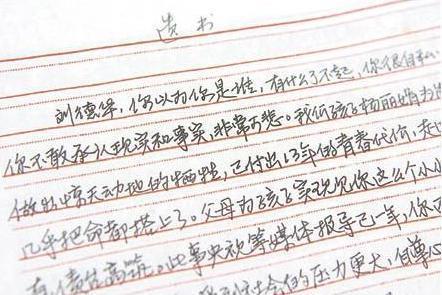 遗书
刘德华，你以为你是谁，有什么了不起，你很自私
你不敢承认现实和事实，非常可悲。我们孩子杨丽娟为
做出惊天动地的牺牲，已付出13年的青春代价，
几乎把命都搭上了。父母为孩子实现见你这么个小小
债台高筑。此事央视等媒体报导已一年，你
的压力更大，自尊